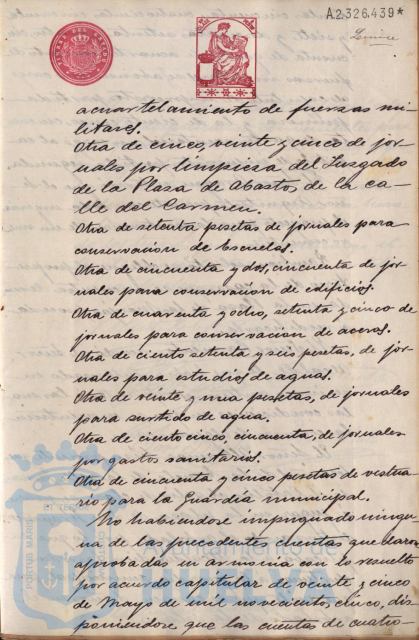 A.2.326.439*
acuartelamiento de fuerzas mi-
litares.
Otra de cinco, veinte y cinco de jor-
nales por limpieza del Juzgado
de la Plaza de Abasto, de la ca-
lle del Carmen.
Otra de setenta pesetas de jornales para
conservacion de Escuelas.
Otra de cincuenta y dos, cincuenta de jor-
nales para conservacion de edificios.
Otra de cuarenta y ocho, setenta y cinco de
jornales para conservacion de aceras.
Otra de ciento setenta y seis pesetas, de jor-
nales para estudios de aguas.
Otra de veinte y una pesetas, de jornales
para surtido de agua.
Otra de ciento cinco, cincuenta, de jornales
por gastos sanitarios.
Otra de cincuenta y cinco pesetas de vestua-
rio para la Guardia municipal.
No habiendose impugnado ningu-
na de las precedentes cuentas quedaron
aprobadas en armonia con lo resuelto
por acuerdo capitular de veinte y cinco
de Mayo de mil novecientos cinco, dis-
poniendose que las cuentas de cuatro-
PORTUS MARIS
Ayuntamiento de
HUELVA